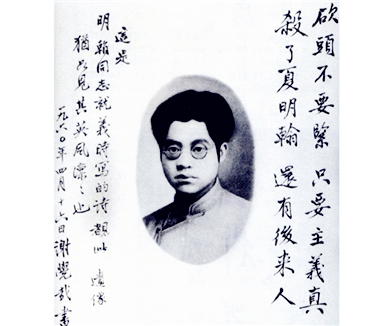 砍頭不要緊 只要主義真
殺了夏明翰 還有後來人
這是
明翰同志就義時寫的詩 此 遺像
猶如見其英風凜々也
一九六〇年四月十六日謝覺哉書